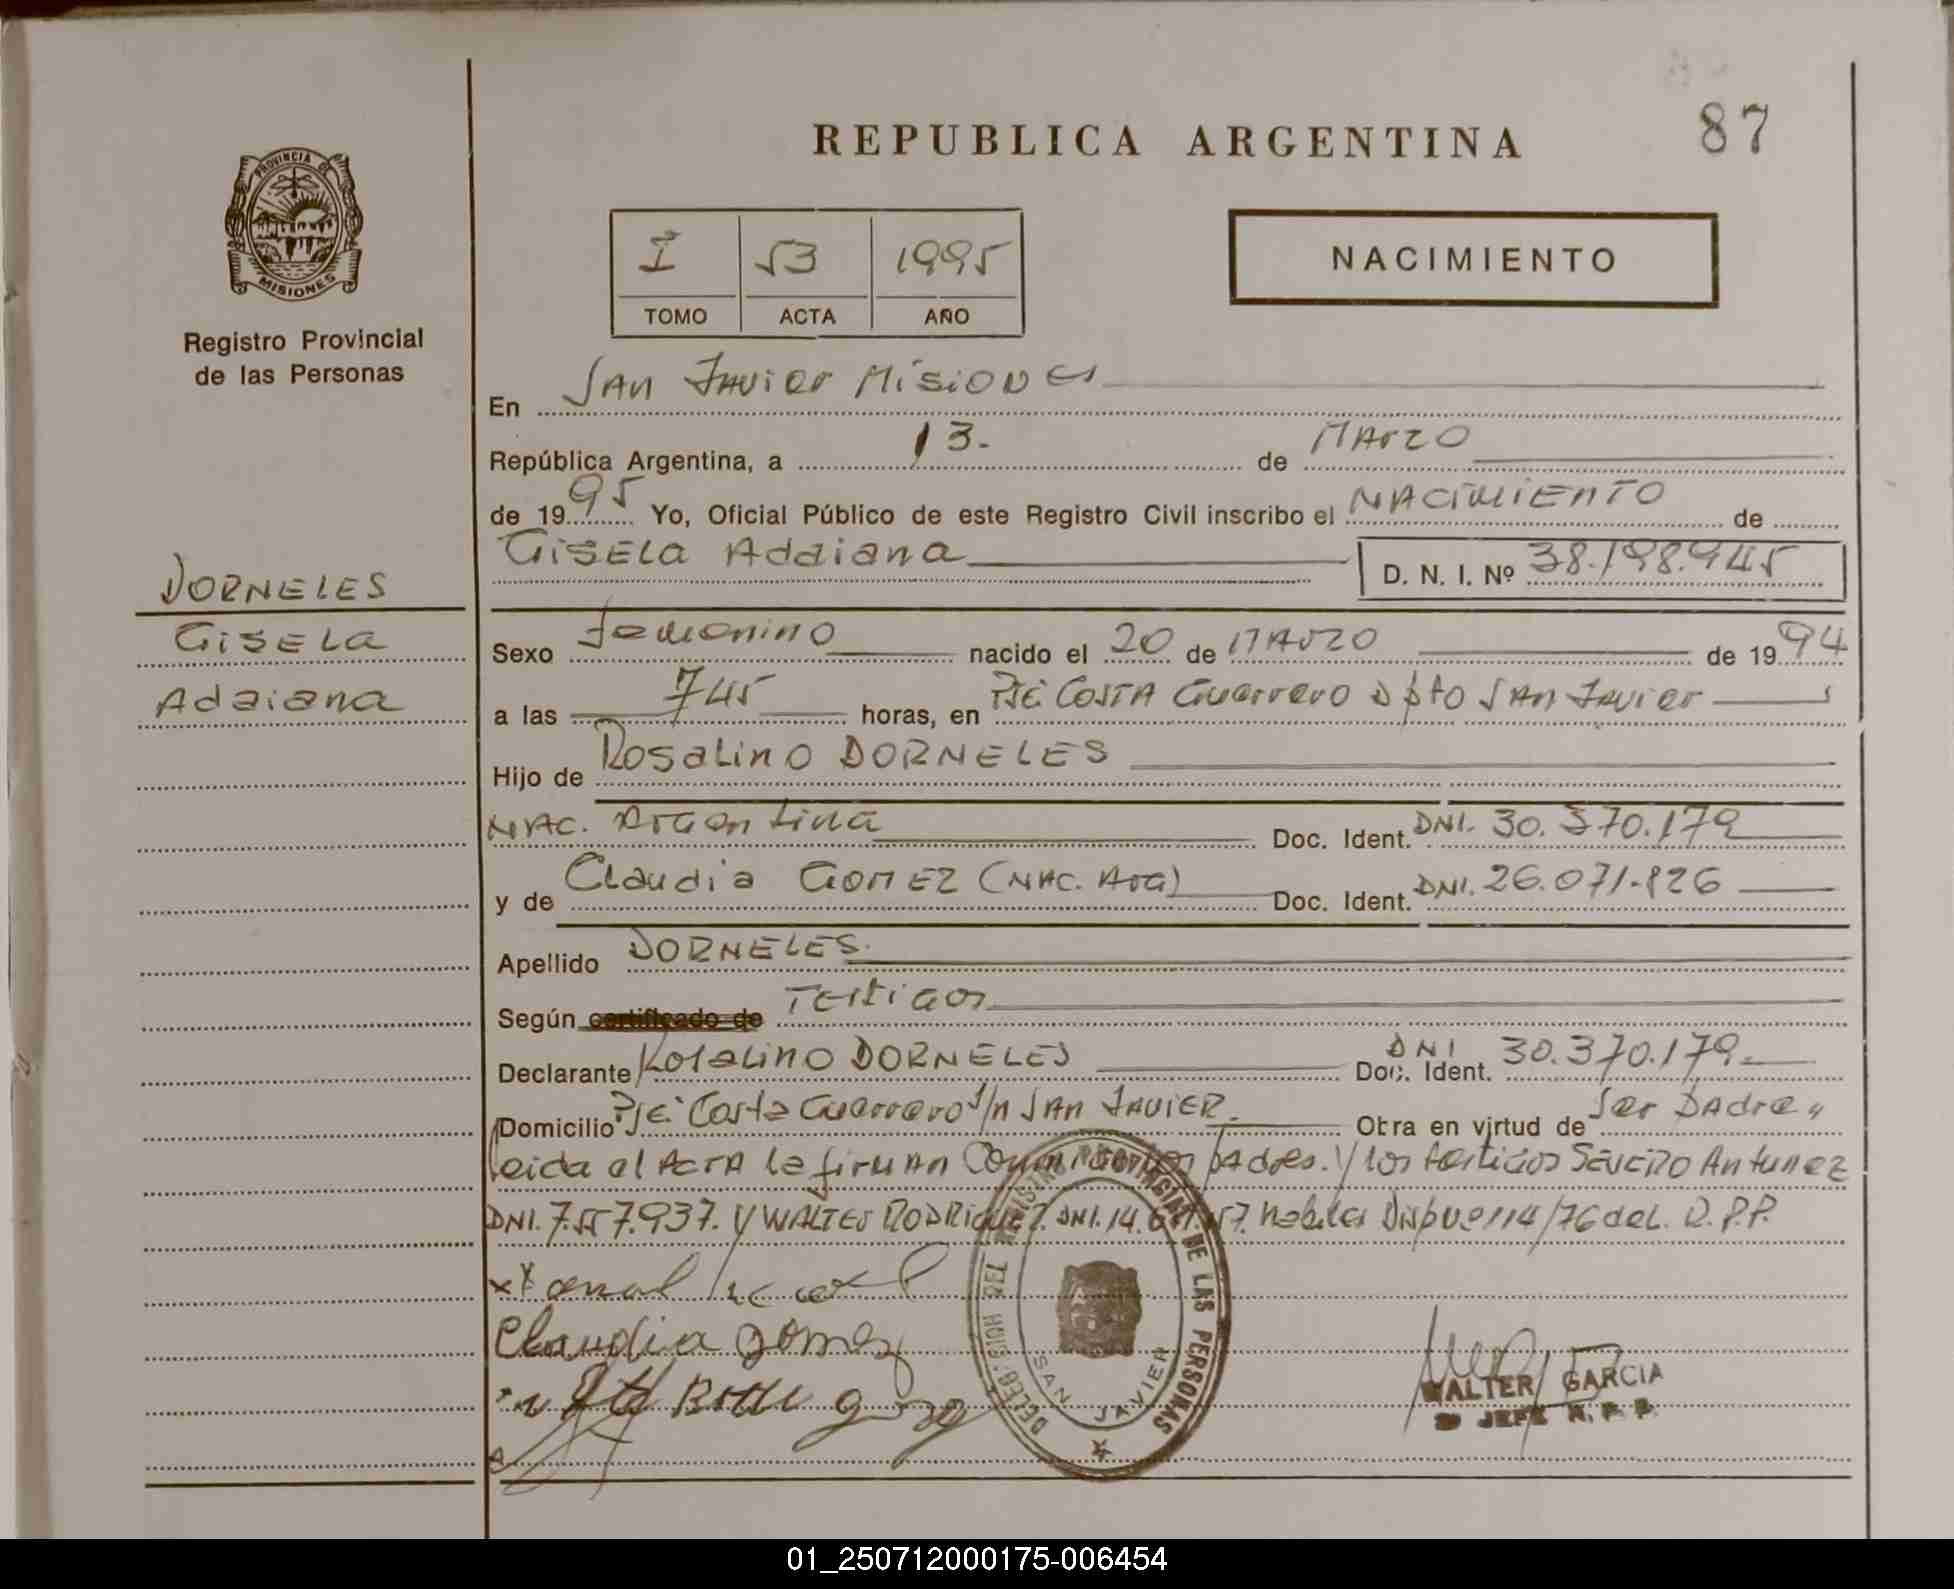 87
REPUBLICA ARGENTINA
PROVINCIA DE
MISIONES
Registro Provincial
de las Personas
I 53 1995
TOMO ACTA AÑO
NACIMIENTO
En San Javier Misiones
República Argentina, a 13. de Marzo
de 1995 Yo, Oficial Público de este Registro Civil inscribo el NACIMIENTO de
GISELA Adaiana D. N. I. Nº 38.198.945
DORNELES
GISELA
Adaiana
Sexo femenino nacido el 20 de Marzo de 1994
a las 745 horas, en Pje Costa Guerrero Dpto San Javier
Hijo de Rosalino DORNELES
NAC. Argentina Doc. Ident. DNI. 30.370.179
y de Claudia GOMEZ (NAC. Arg) Doc. Ident. DNI. 26.071.826
Apellido DORNELES.
Según certificado de Testigos
Declarante Rosalino DORNELES Doc. Ident. DNI 30.370.179
Domicilio Pje Costa Guerrero S/n San JAVIER. Obra en virtud de Ser Padre,
leida el ACTA la firman padres. y los testigos SEVERO Antunez
DNI. 7.557.937. y WALTER RODRIGUEZ. DNI. 14. 57. habiles Disp. 114/76 del. R.P.P.
Claudia gomez
REGISTRO PROVINCIAL DE LAS PERSONAS
DELEG.
SAN JAVIER
WALTER GARCIA
JEFE R. P. P.
01_250712000175-006454